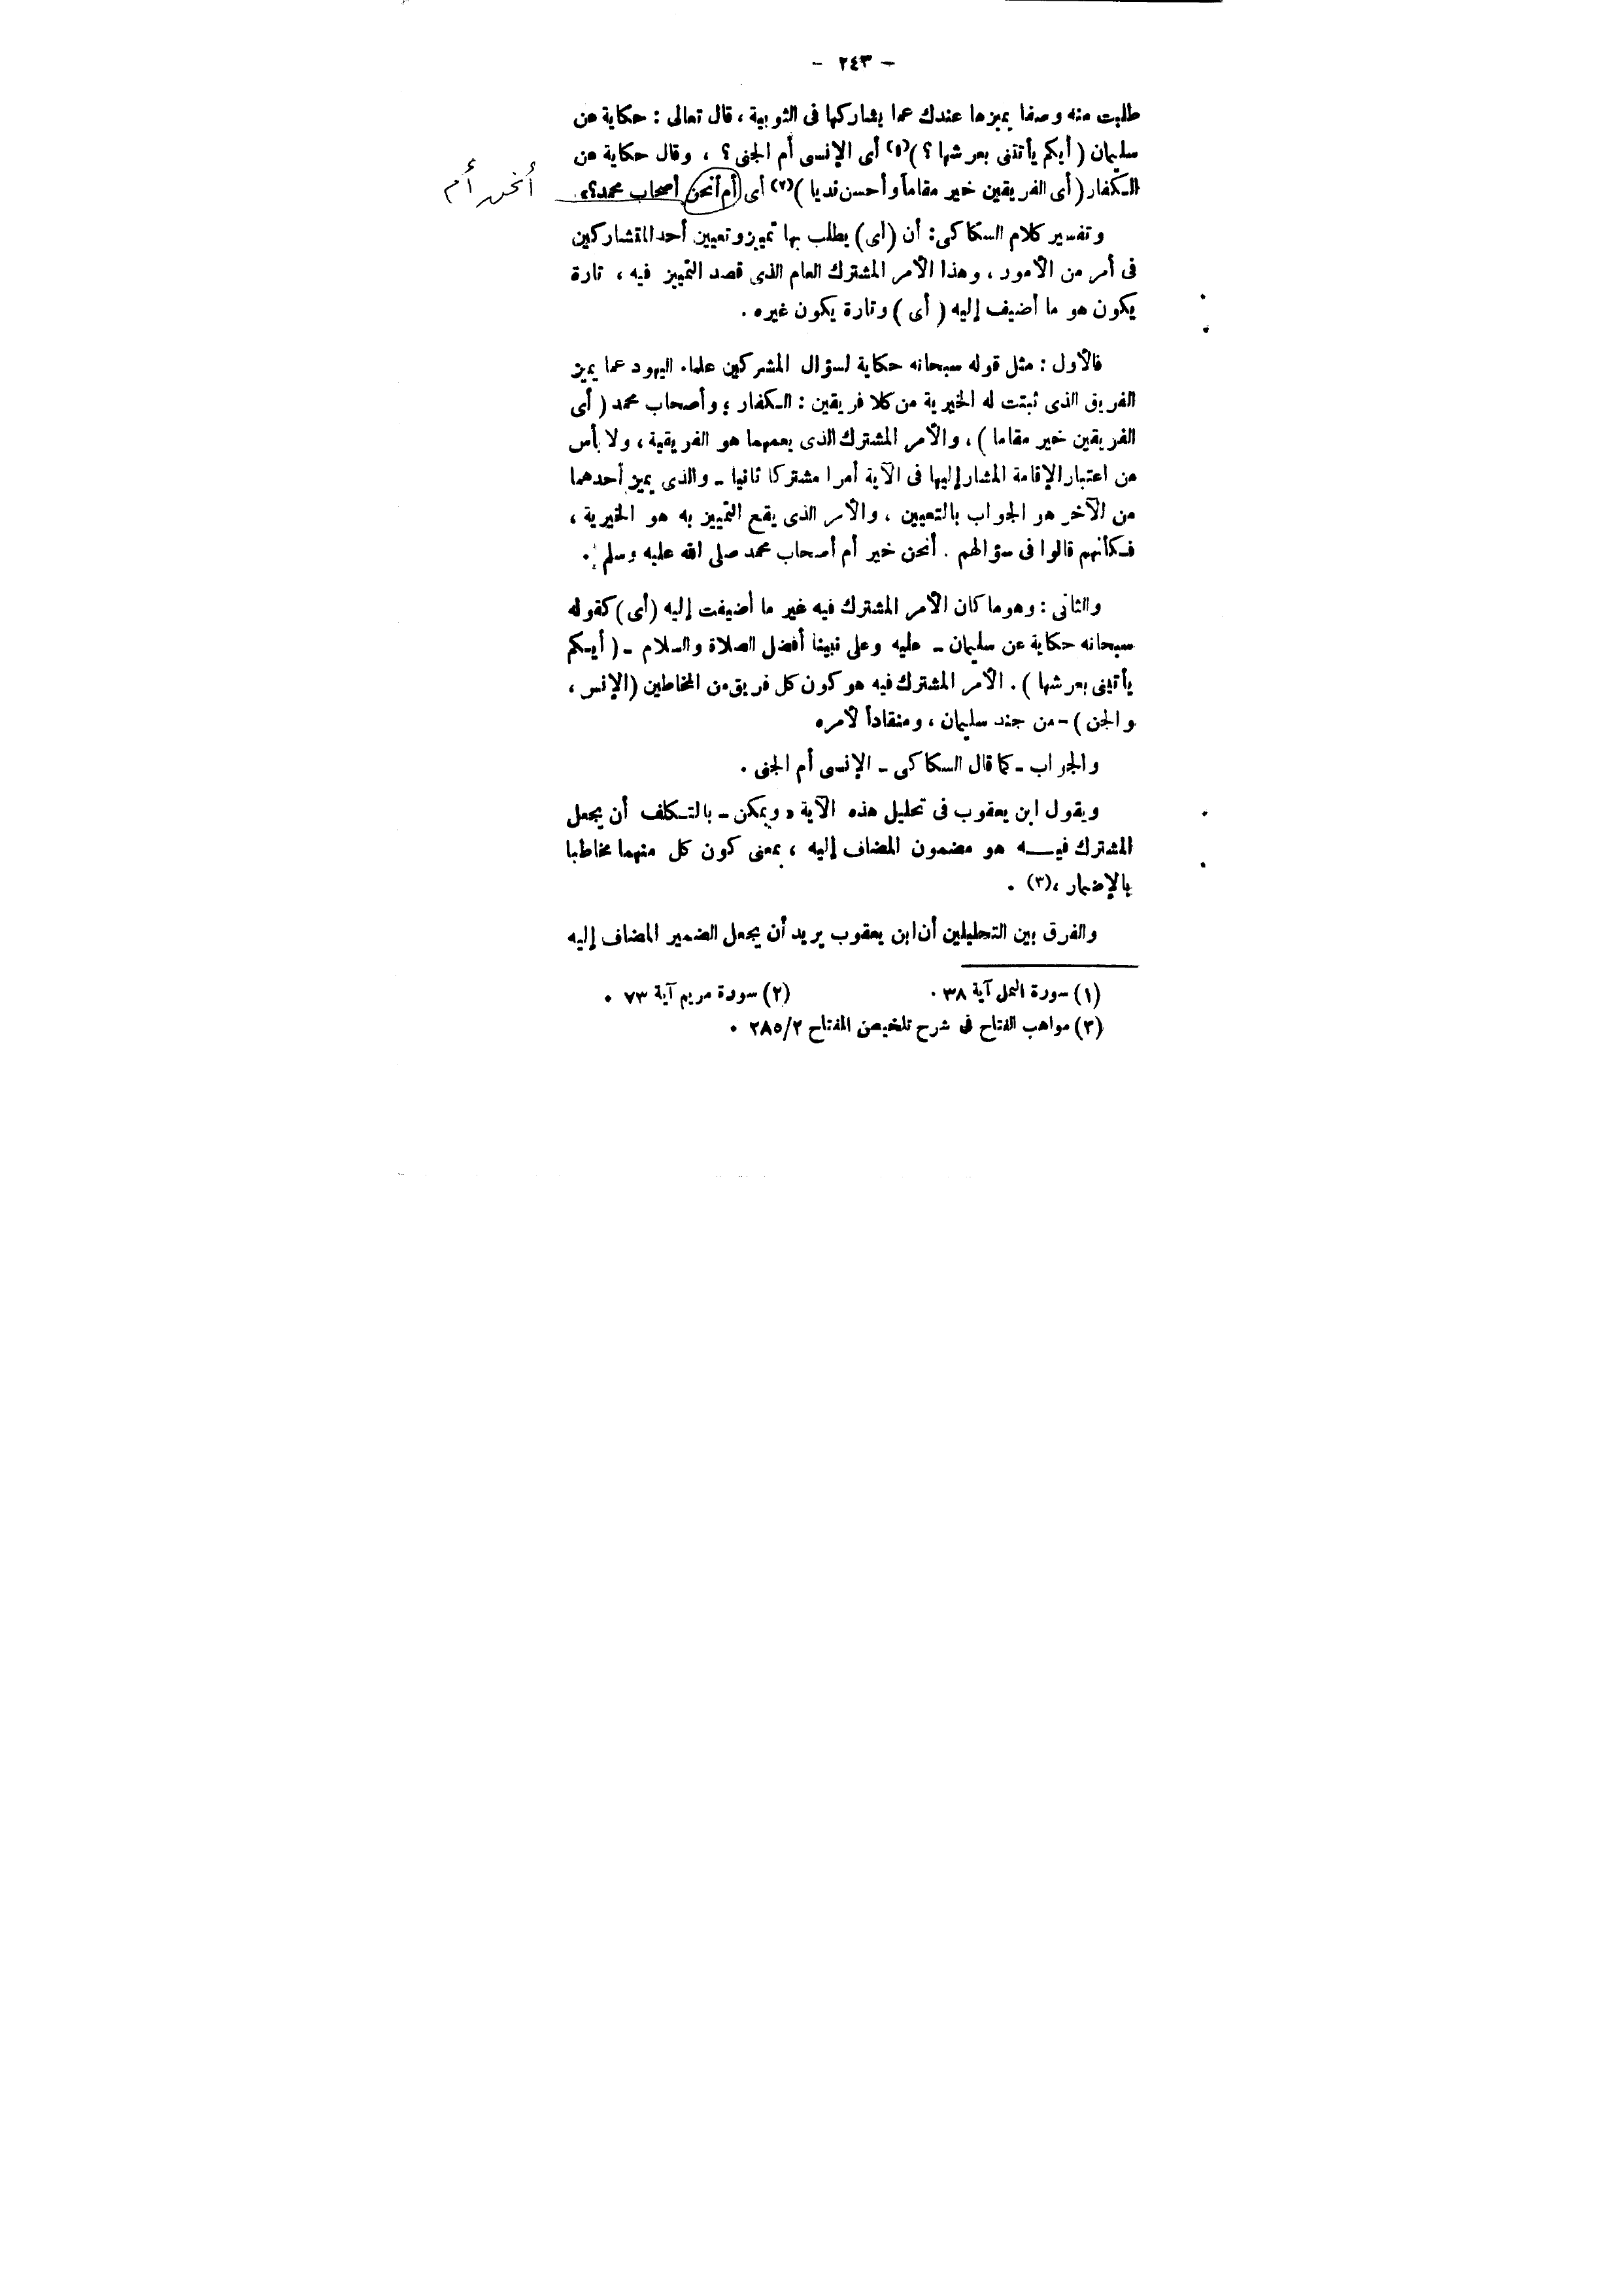 - ٢٤٣ -
طلبت منه وصفا يميزها عندك عما يشاركها فى الثوبية ، قال تعالى : حكاية عن
سليمان ( أيكم يأتنى بعرشها ؟ )(١) أى الإنسى أم الجنى ؟ ، وقال حكاية عن
الكفار ( أى الفريقين خير مقاماً وأحسن نديا )(٢) أى أم أنحن أصحاب محمد؟»
أنحن أم
وتفسير كلام السكاكى : أن (أى) يطلب بها تمييز وتعيين أحد المتشاركين
فى أمر من الأمور ، وهذا الأمر المشترك العام الذى قصد التمييز فيه ، تارة
يكون هو ما أضيف إليه ( أى ) وتارة يكون غيره .
فالأول : مثل قوله سبحانه حكاية لسؤال المشركين علماء اليهود عما يميز
الفريق الذى ثبتت له الخيرية من كلا فريقين : الكفار ؛ وأصحاب محمد ( أى
الفريقين خير مقاما ) ، والأمر المشترك الذى يعمهما هو الفريقية ، ولا بأس
من اعتبار الإقامة المشار إليها فى الآية أمرا مشتركا ثانيا ـ والذى يميز أحدهما
من الآخر هو الجواب بالتعيين ، والأمر الذى يقع التمييز به هو الخيرية ،
فكأنهم قالوا فى سؤالهم . أنحن خير أم أصحاب محمد صلى الله عليه وسلم .
والثانى : وهو ما كان الأمر المشترك فيه غير ما أضيفت إليه (أى) كقوله
سبحانه حكاية عن سليمان ـ عليه وعلى نبينا أفضل الصلاة والسلام ـ ( أيكم
يأتينى بعرشها ) . الأمر المشترك فيه هو كون كل فريق من المخاطبين (الإنس ،
والجن ) - من جند سليمان ، ومنقاداً لأمره
والجواب ـ كما قال السكاكى ـ الإنسى أم الجنى .
ويقول ابن يعقوب فى تحليل هذه الآية « ويمكن ـ بالتكلف أن يجعل
المشترك فيه هو مضمون المضاف إليه ، بمعنى كون كل منهما مخاطبا
بالإضمار ،(٣) .
والفرق بين التحليلين أن ابن يعقوب يريد أن يجعل الضمير المضاف إليه
(١) سورة النمل آية ٣٨ . (٢) سورة مريم آية ٧٣ .
(٣) مواهب الفتاح فى شرح تلخيص المفتاح ٢/ ٢٨٥ .